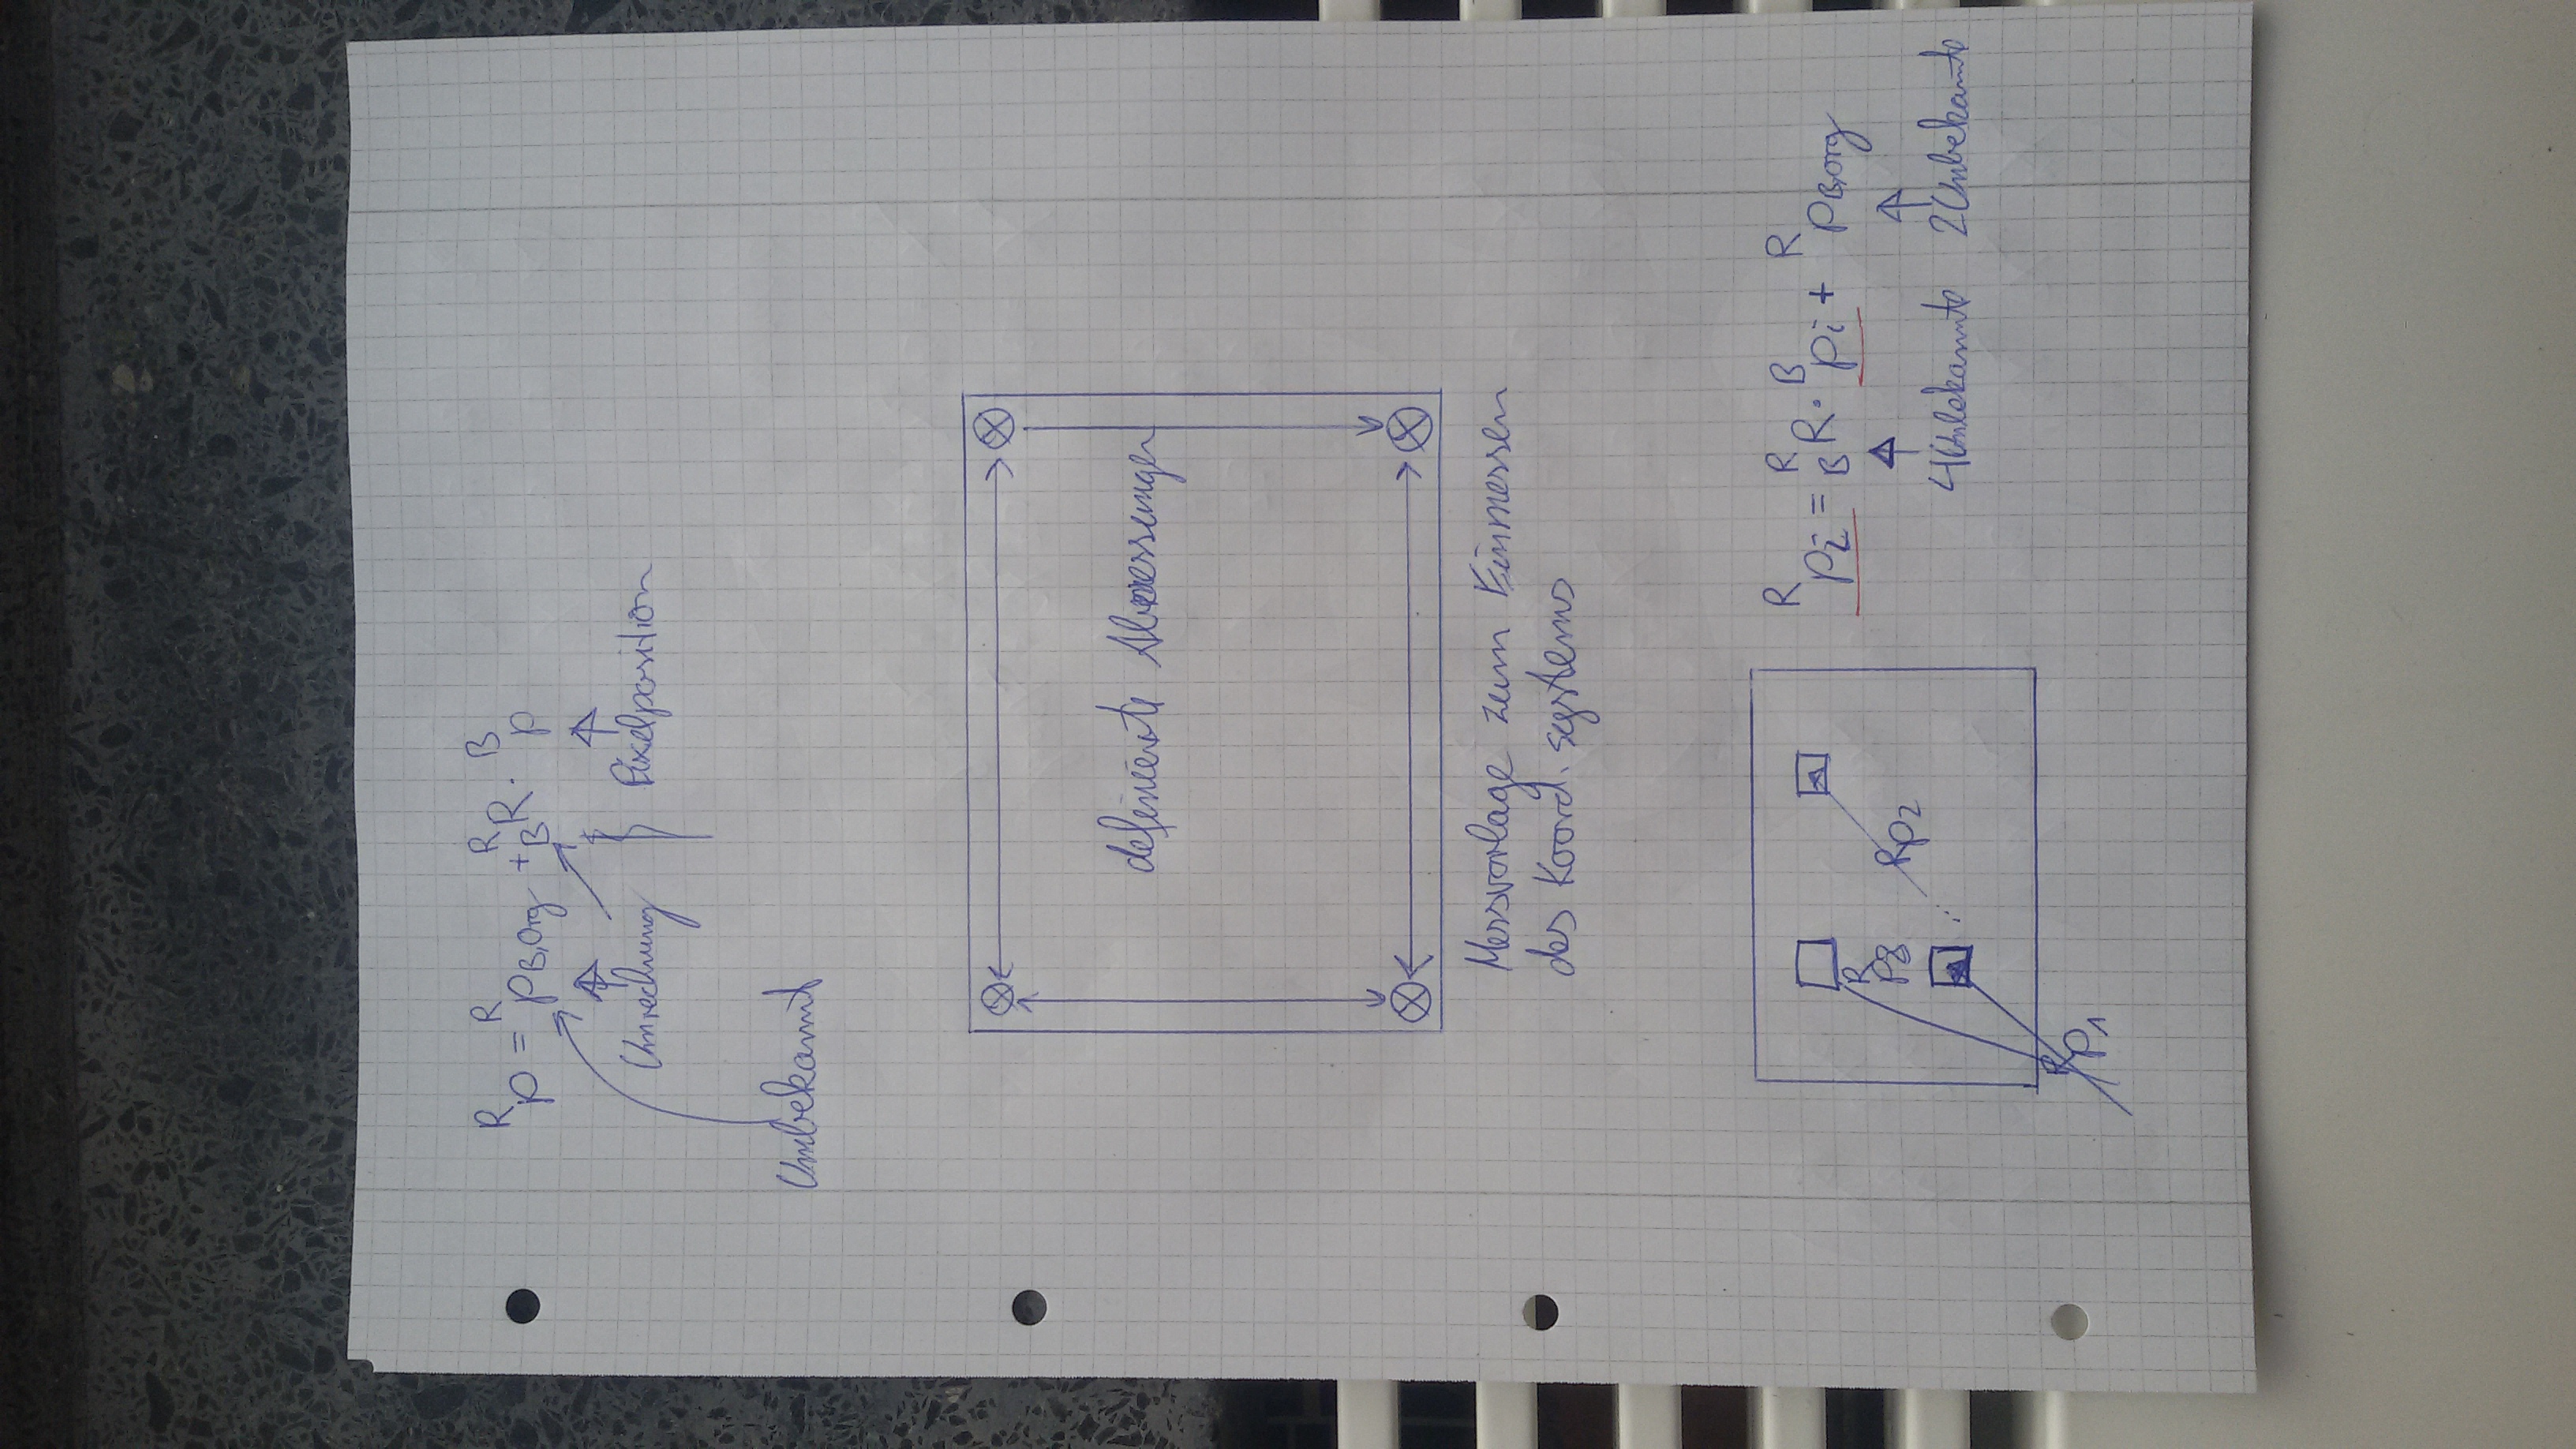 ᴿp = ᴿp_B,Org + ᴿ_B R · ᴮp
Umrechnung Pixelposition
Unbekannt
definierte Abmessungen
Messvorlage zum Einmessen
des Koord. systems
ᴿp_i = ᴿ_B R · ᴮp_i + ᴿp_B,org
ᴿp_3 ᴿp_2
4 Unbekannte 2 Unbekannte
ᴿp_1